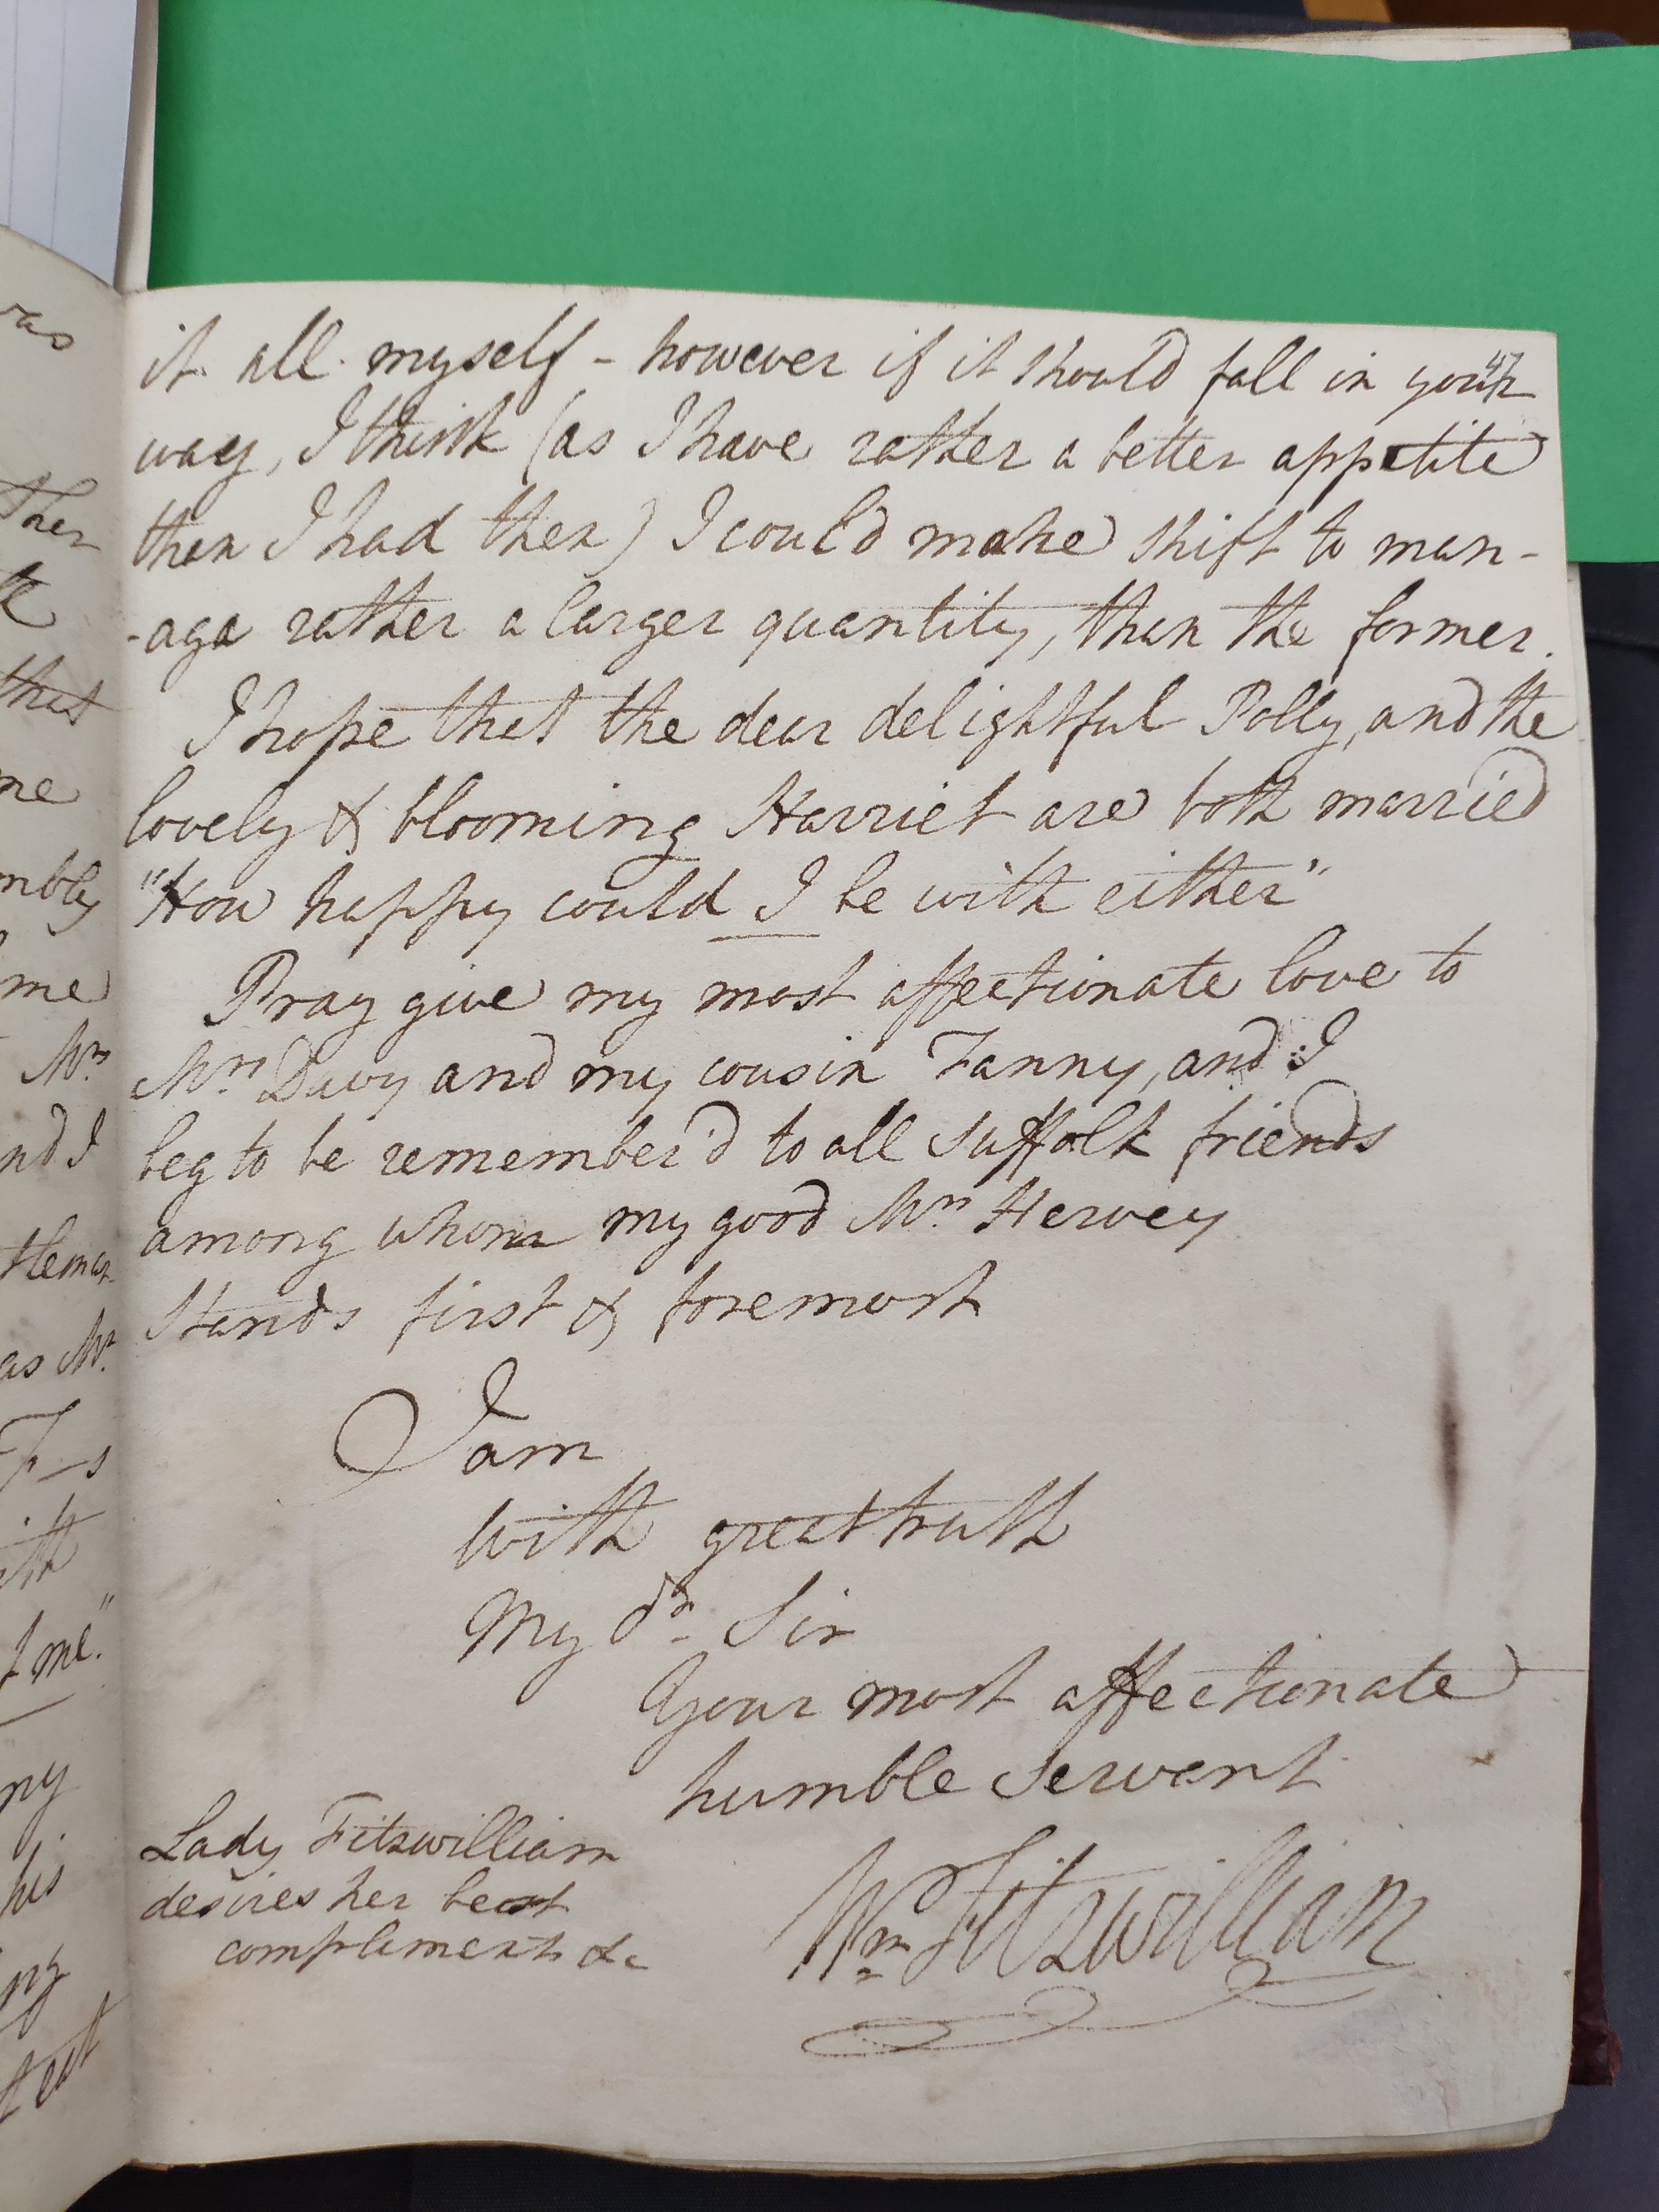 it all myself - however if it should fall in your
47
way, I think (as I have rather a better appetite
than I had then) I could make shift to man-
-age rather a larger quantity, than the former.
I hope that the dear delightful Polly, and the
lovely & blooming Harriet are both married
"How happy could I be with either"
Pray give my most affectionate love to
Mrs Davy and my cousin Fanny, and I
beg to be remember'd to all Suffolk friends
among whom my good Mrs Hervey
stands first & foremost
I am
with great truth
My dr Sir
Your most affectionate
humble servant
Wm Fitzwilliam
Lady Fitzwilliam
desires her best
compliments &c